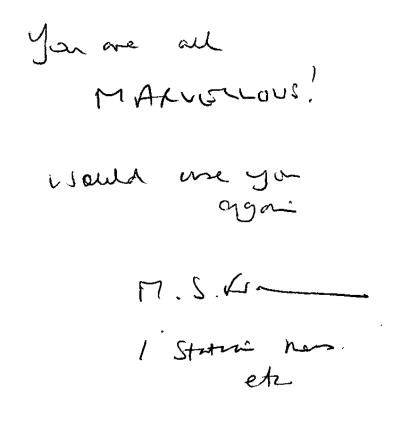 You are all
MARVELLOUS!
would use you
again
M. S.
1 Station
etc